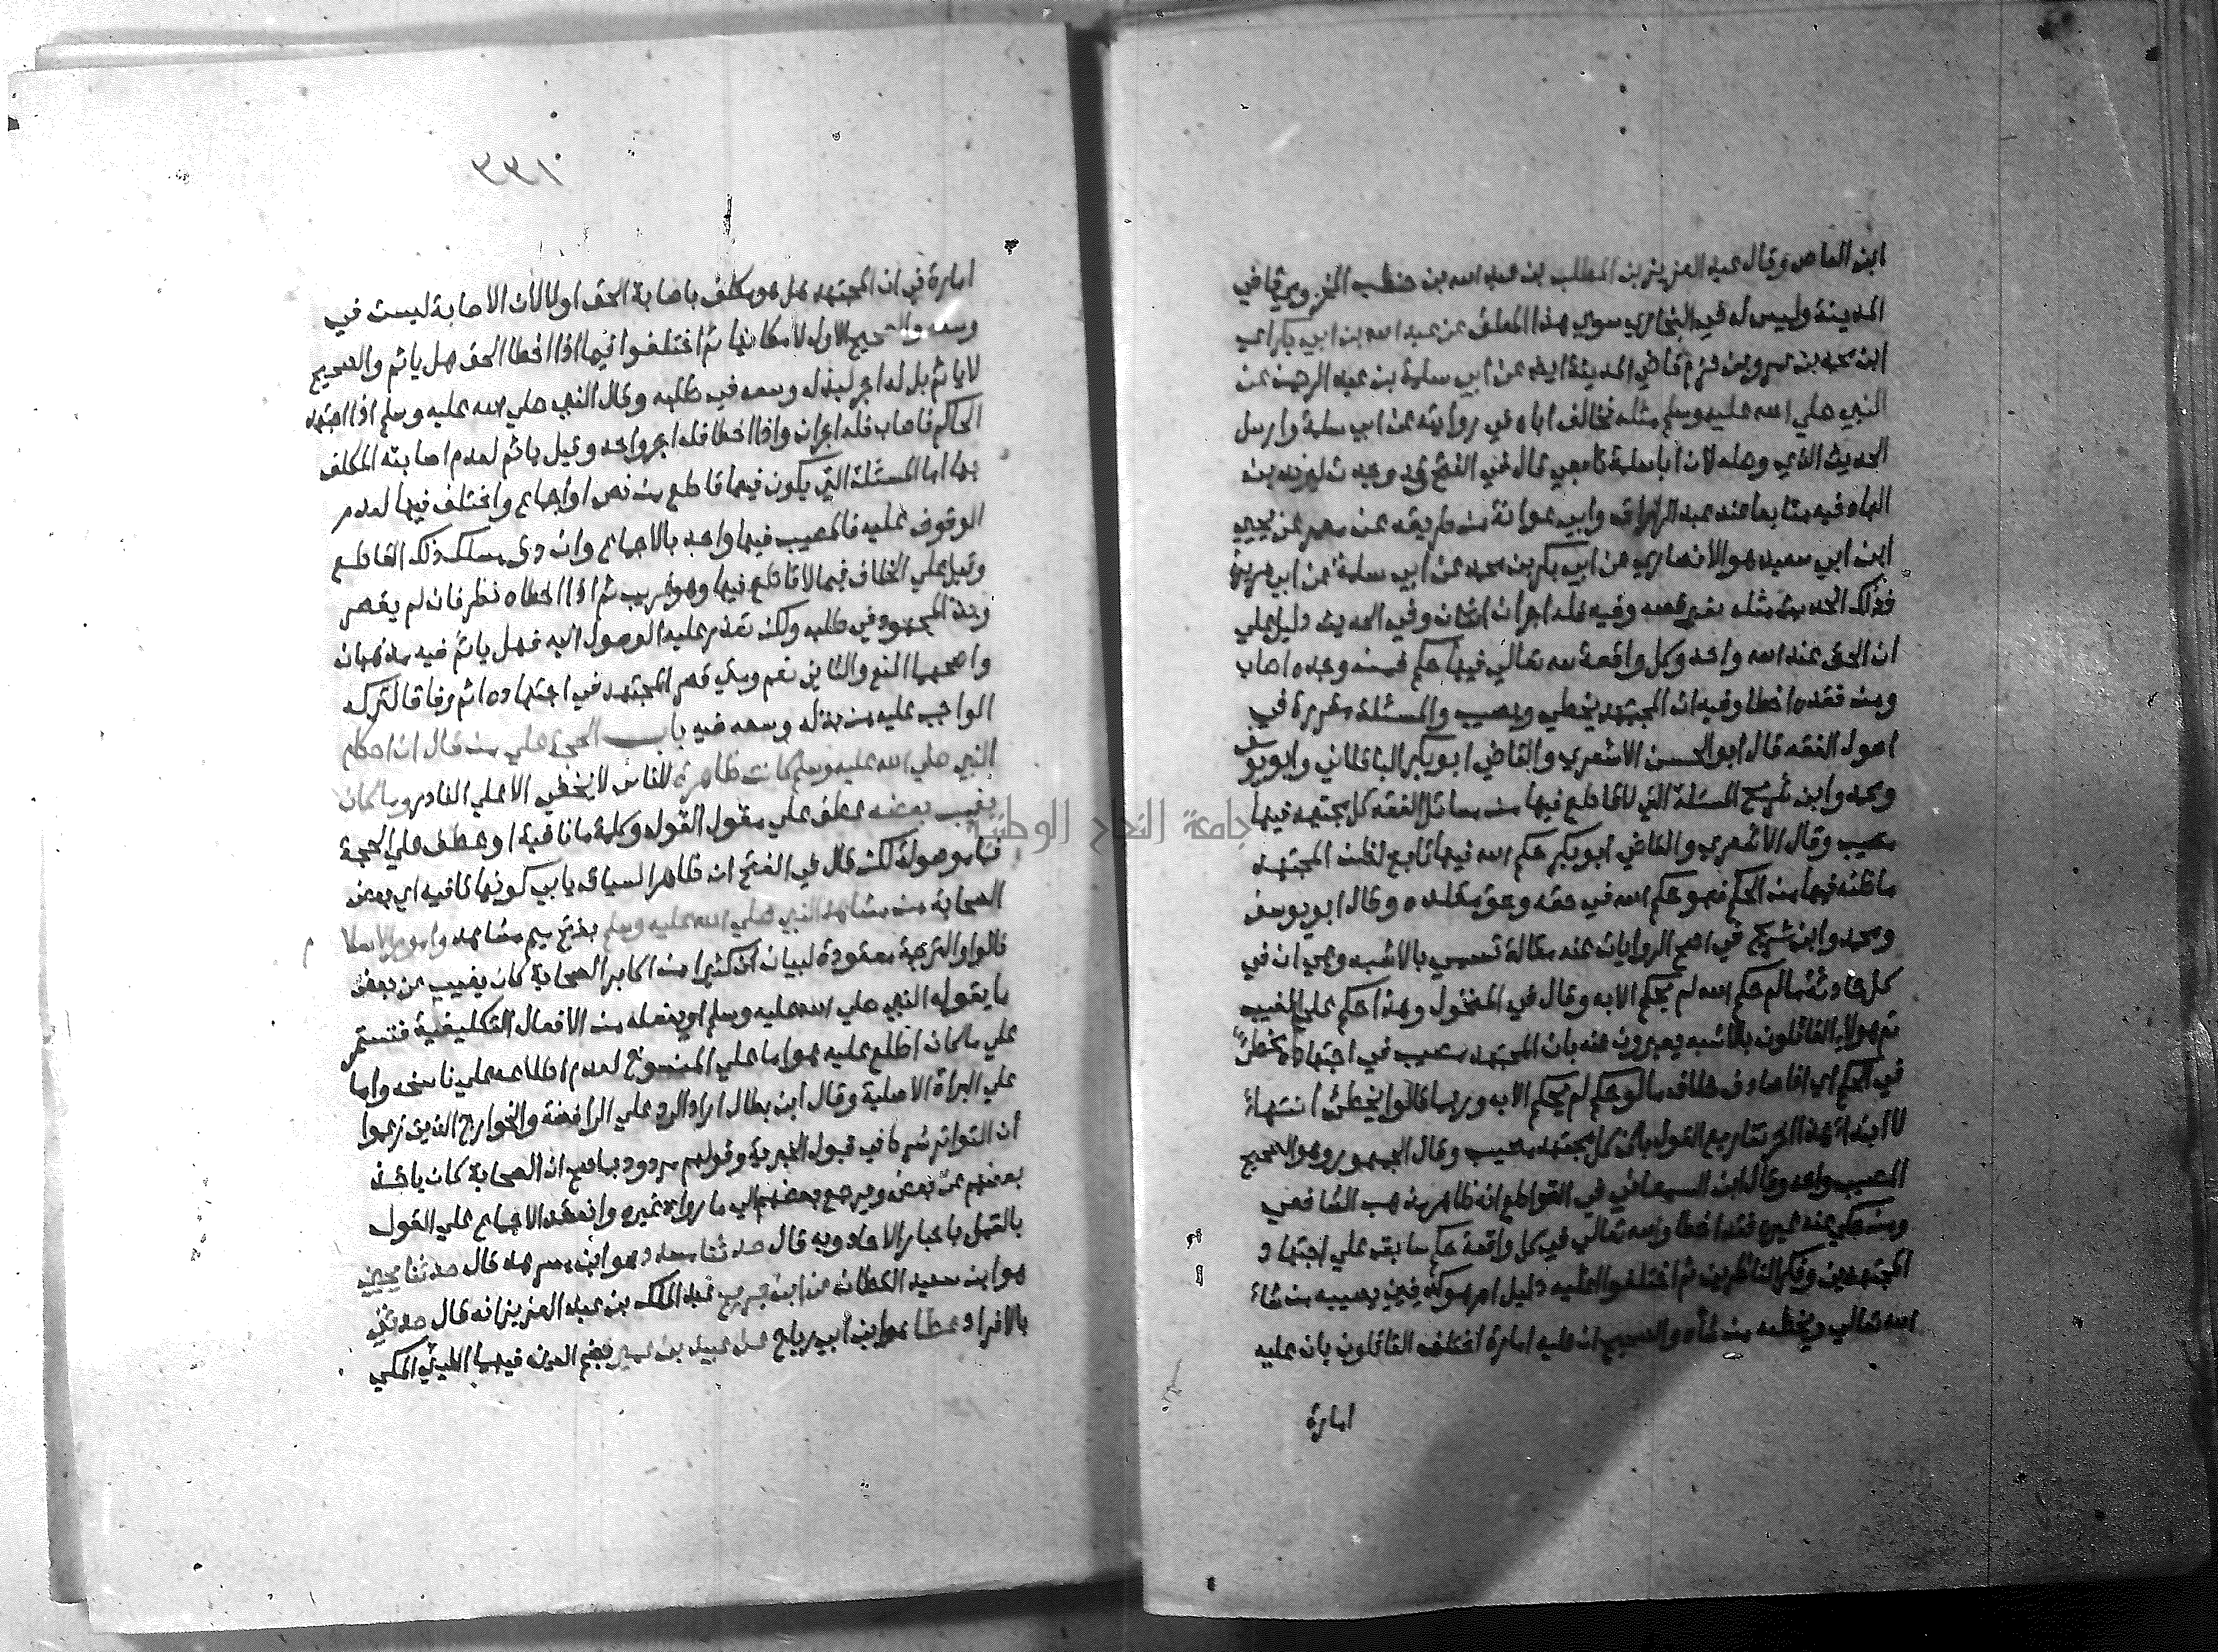 ابن العاص وقال عبد العزيز بن المطلب بن عبد الله بن حنطب المخزومي قاضي
المدينة وليس له في البخاري سوي هذا المعلق عن عبد الله بن ابي بكر اي
ابن محمد بن عمرو بن حزم قاضي المدينة ايضا عن ابي سلمة بن عبد الرحمن عن
النبي صلي الله عليه وسلم مثله فخالف اباه في روايته عن ابي سلمة وارسل
الحديث الذي وصله لان ابا سلمة تابعي قال في الفتح وقد وجدت ليزيد بن
الهاد فيه متابعا عند عبد الرزاق وابي عوانة من طريقه عن معمر عن يحيي
ابن ابي سعيد هو الانصاري عن ابي بكر بن محمد عن ابي سلمة عن ابي هريرة
فذلك الحديث مثله بغير قصة وفيه فله اجران اثنان وفي الحديث دليل علي
ان الحق عند الله واحد وكل واقعة لله تعالي فيها حكم فمن وجده اصاب
ومن فقده اخطا وفيه ان المجتهد يخطي ويصيب والمسئلة مقررة في
اصول الفقه قال ابو الحسن الاشعري والقاضي ابو بكر الباقلاني وابو يوسف
ومحمد وابن شريح المسئلة التي لا قاطع فيها من مسائل الفقه كل مجتهد فيها
مصيب وقال الاشعري والقاضي ابو بكر حكم الله فيها تابع لظن المجتهد
ما ظنه فيها من الحكم فهو حكم الله في حقه وحق مقلده وقال ابو يوسف
ومحمد وابن شريح في اصح الروايات عنه مقالة تسمي بالاشبه وهي ان في
كل حادثة ما لو حكم الله لم يحكم الا به وقال في المنخول وهذا حكم علي الغيب
ثم هولاء القائلون بالاشبه يعبرون عنه بان المجتهد مصيب في اجتهاده مخطئ
في الحكم اي اذا صادف خلاف ما لو حكم لم يحكم الا به وربما قالوا يخطئ انتهاء
لا ابتداء هذا اخر تفاريع القول بان كل مجتهد مصيب وقال الجمهور وهو الصحيح
المصيب واحد وقال ابن السمعاني في القواطع انه ظاهر مذهب الشافعي
ومن حكي عنه غيره فقد اخطا ولله تعالي في كل واقعة حكم سابق علي اجتهاد
المجتهدين وفكر الناظرين ثم اختلفوا اعليه دليل ام هو كدفين يصيبه من شاء
الله تعالي ويخطئه من شاء والصحيح ان عليه امارة اختلف القائلون بان عليه
امارة
٣٣١
امارة في ان المجتهد هل هو مكلف باصابة الحق او لا لان الاصابة ليست في
وسعه والصحيح الاول لامكانها ثم اختلفوا فيما اذا اخطا الحق هل ياثم والصحيح
لا ياثم بل له اجر لبذله وسعه في طلبه وقال النبي صلي الله عليه وسلم اذا اجتهد
الحاكم فاصاب فله اجران واذا اخطا فله اجر واحد وقيل ياثم لعدم اصابته المكلف
بها اما المسئلة التي يكون فيها قاطع من نص او اجماع واختلف فيها لعدم
الوقوف عليه فالمصيب فيها واحد بالاجماع وان دق مسلك ذلك القاطع
وقيل علي الخلاف فيما لا قاطع فيها وهو غريب ثم اذا اخطاه نظر فان لم يقصر
وبذل المجهود في طلبه ولكن تعذر عليه الوصول اليه فهل ياثم فيه مذهبان
واصحهما المنع والثاني نعم ومتي قصر المجتهد في اجتهاده اثم وفاقا لتركه
الواجب عليه من بذله وسعه فيه باب الحجة علي من قال ان احكام
النبي صلي الله عليه وسلم كانت ظاهرة للناس لا تخفي الا علي النادر وما كان
يغيب بعضهم عطف علي مقول القول وكلمة ما نافية او عطف علي الحجة
فما موصولة لكن قال في الفتح ان ظاهر السياق يابي كونها نافية اي بعض
الصحابة من مشاهد النبي صلي الله عليه وسلم بفتح ميم مشاهد وامور الاسلام
قالوا والترجمة معقودة لبيان ان كثيرا من اكابر الصحابة كان يغيب عن بعض
ما يقوله النبي صلي الله عليه وسلم او يفعله من الافعال التكليفية فتستمر
علي ما كان اطلع عليه هو اما علي المنسوخ لعدم اطلاعه علي ناسخه واما
علي البراة الاصلية وقال ابن بطال اراد الرد علي الرافضة والخوارج الذين زعموا
ان التواتر شرط في قبول الخبر وقولهم مردود بما صح ان الصحابة كان ياخذ
بعضهم عن بعض ويرجع بعضهم الي ما رواه غيره وانعقد الاجماع علي القول
بالعمل باخبار الاحاد وبه قال حدثنا مسدد هو ابن مسرهد قال حدثنا يحيي
هو ابن سعيد القطان عن ابن جريج عبد الملك بن عبد العزيز انه قال حدثني
بالافراد عطا هو ابن ابي رباح عن عبيد بن عمير بضم العين فيهما الليثي المكي
جامعة النجاح الوطنية